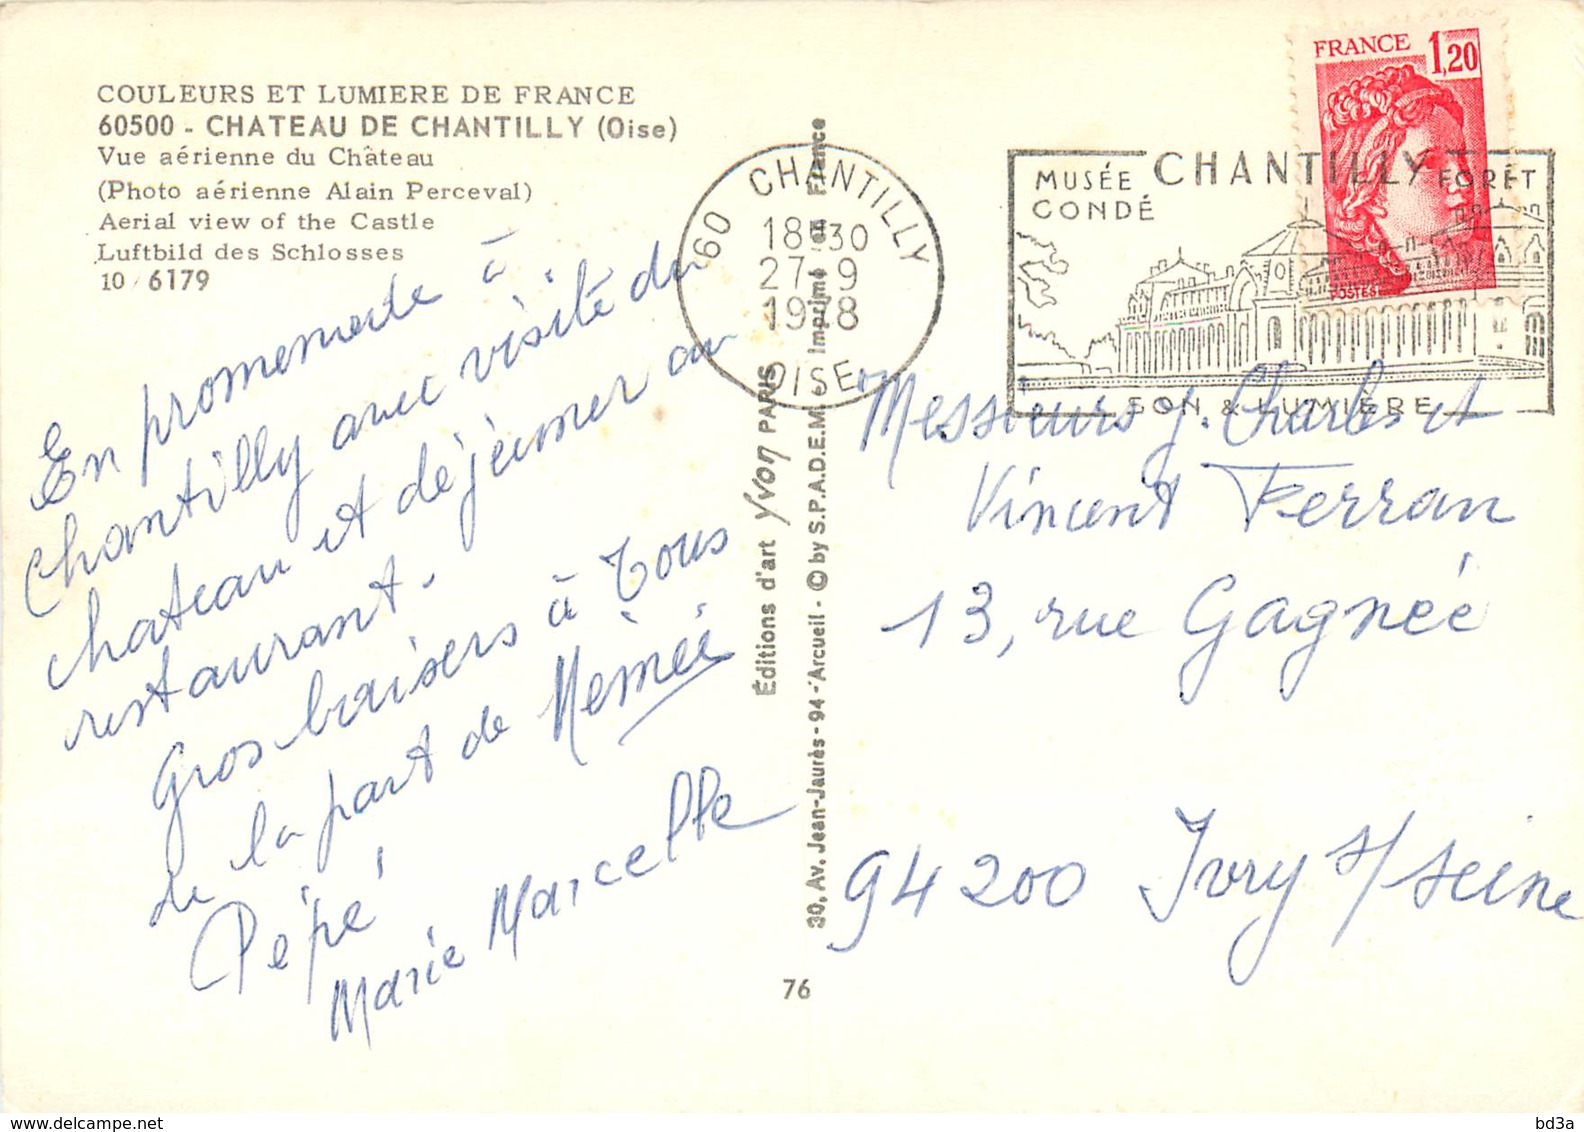 COULEURS ET LUMIERE DE FRANCE
60500 - CHATEAU DE CHANTILLY (Oise)
Vue aérienne du Château
(Photo aérienne Alain Perceval)
Aerial view of the Castle
Luftbild des Schlosses
10 / 6179
En promenade à
Chantilly avec visite du
chateau et déjeuner au
restaurant.
Gros baisers à Tous
de la part de Mémée
Pépé
Marie Marcelle
Editions d'art Yvon PARIS
30, Av. Jean-Jaurès - 94 - Arcueil - © by S.P.A.D.E.M. - Imprimé en France
76
60 CHANTILLY
18H30
27-9
1978
OISE
MUSÉE CHANTILLY FORÊT
CONDÉ
SON & LUMIÈRE
FRANCE 1,20
POSTES
Messieurs J. Charles et
Vincent Ferran
13, rue Gagnée
94200 Ivry s/ seine
bd3a